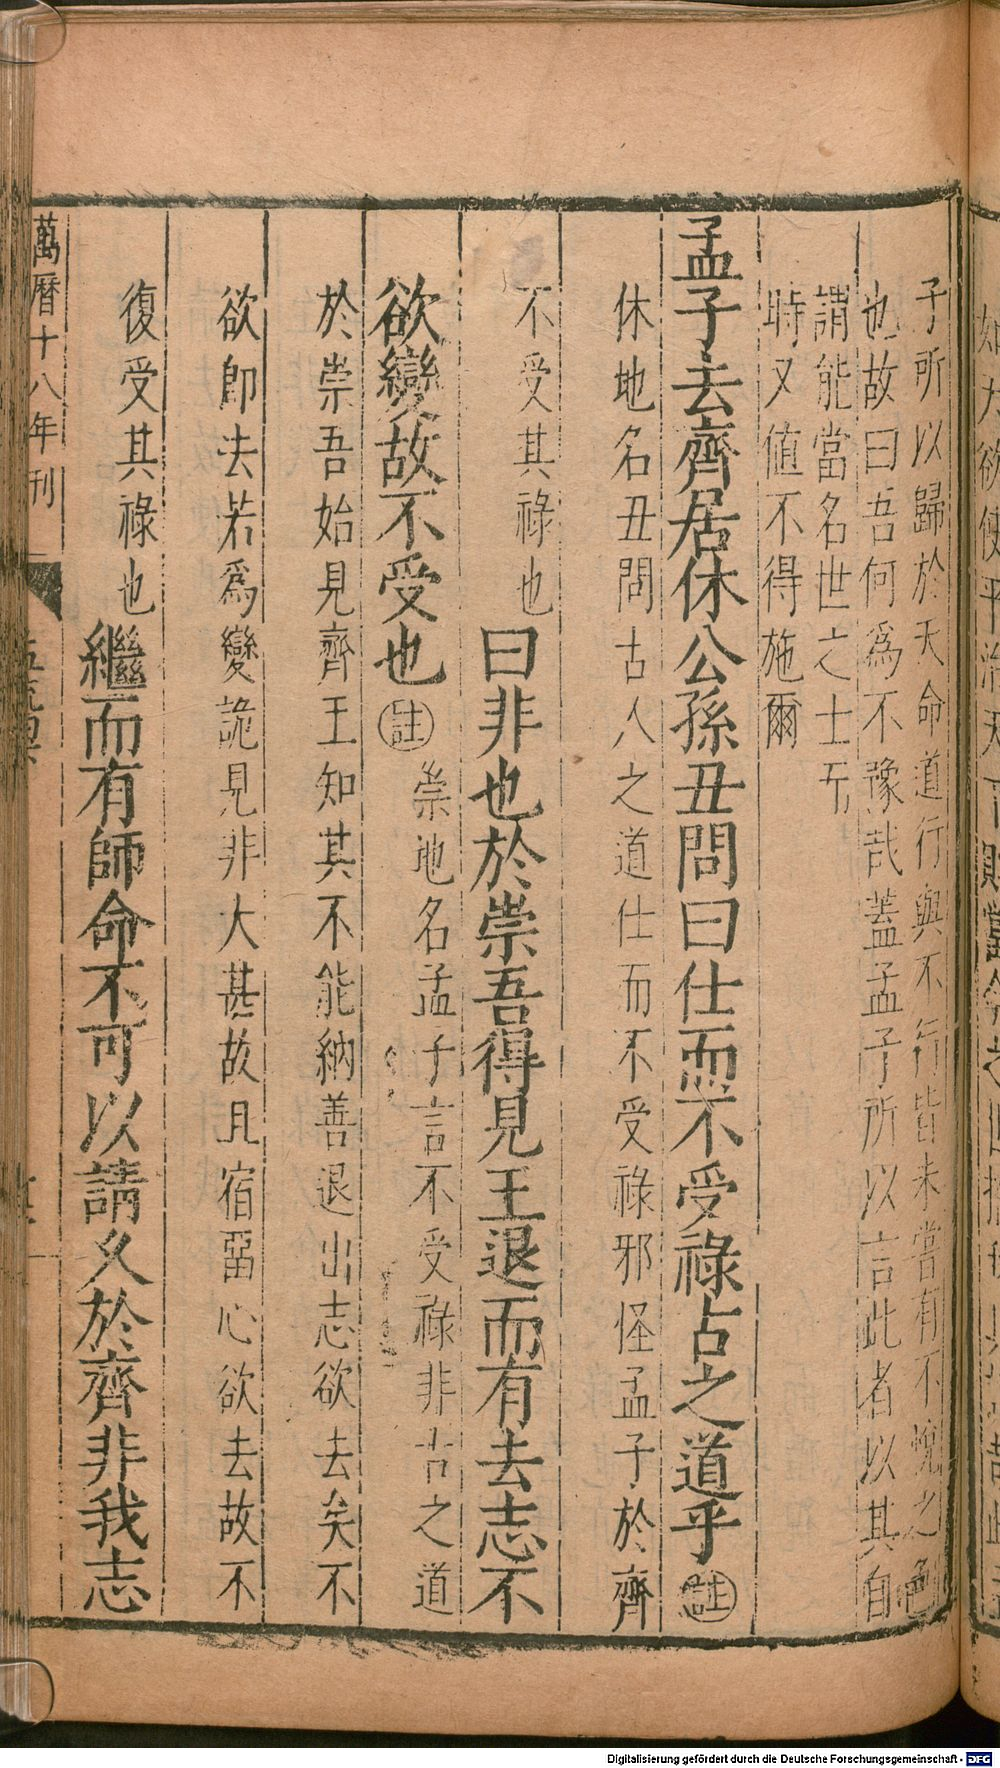 子所以歸於天命道行與不行皆未嘗有不悅之色
也故曰吾何爲不豫哉蓋孟子所以言此者以其自
謂能當名世之士
時又値不得施爾
孟子去齊居休公孫丑問曰仕而不受祿古之道乎註
休地名丑問古人之道仕而不受祿邪怪孟子於齊
不受其祿也
曰非也於崇吾得見王退而有去志不
欲變故不受也註
崇地名孟子言不受祿非古之道
於崇吾始見齊王知其不能納善退出志欲去矣不
欲卽去若爲變詭見非大甚故且宿留心欲去故不
復受其祿也
繼而有師命不可以請久於齊非我志
萬曆十八年刊
Digitalisierung gefördert durch die Deutsche Forschungsgemeinschaft - DFG